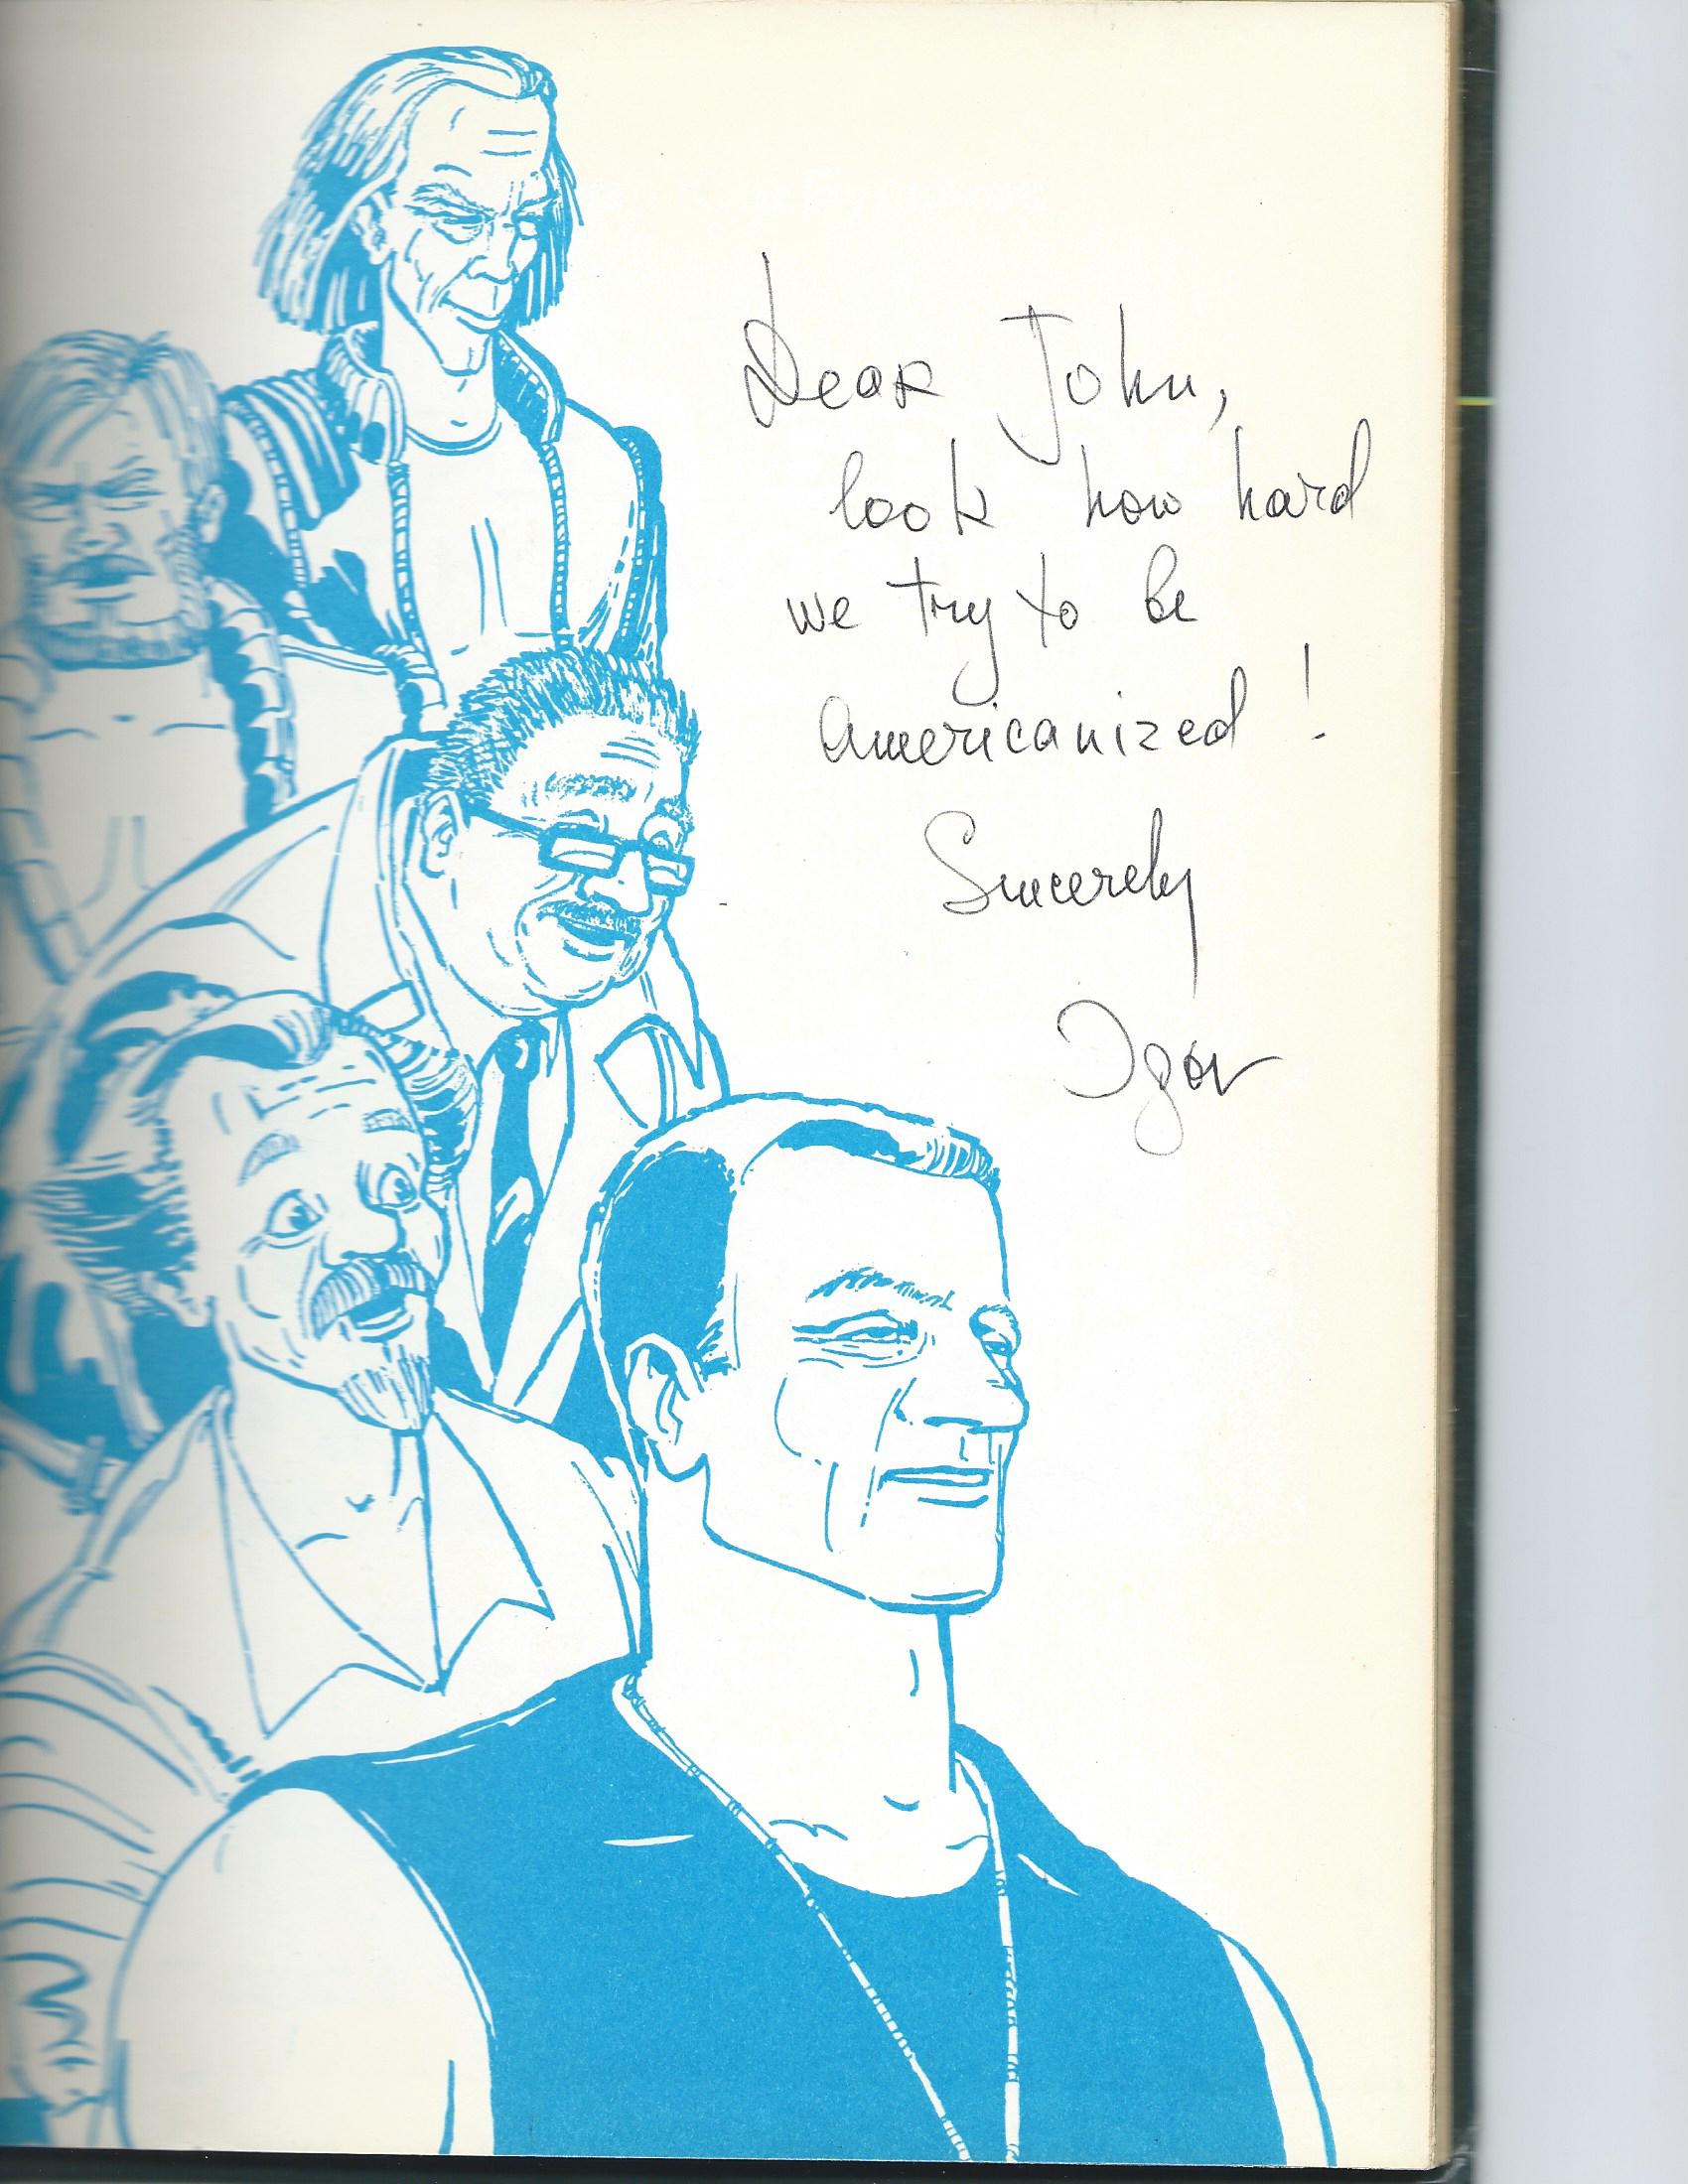 Dear John,
look how hard
we try to be
Americanized !
Sincerely
Igor